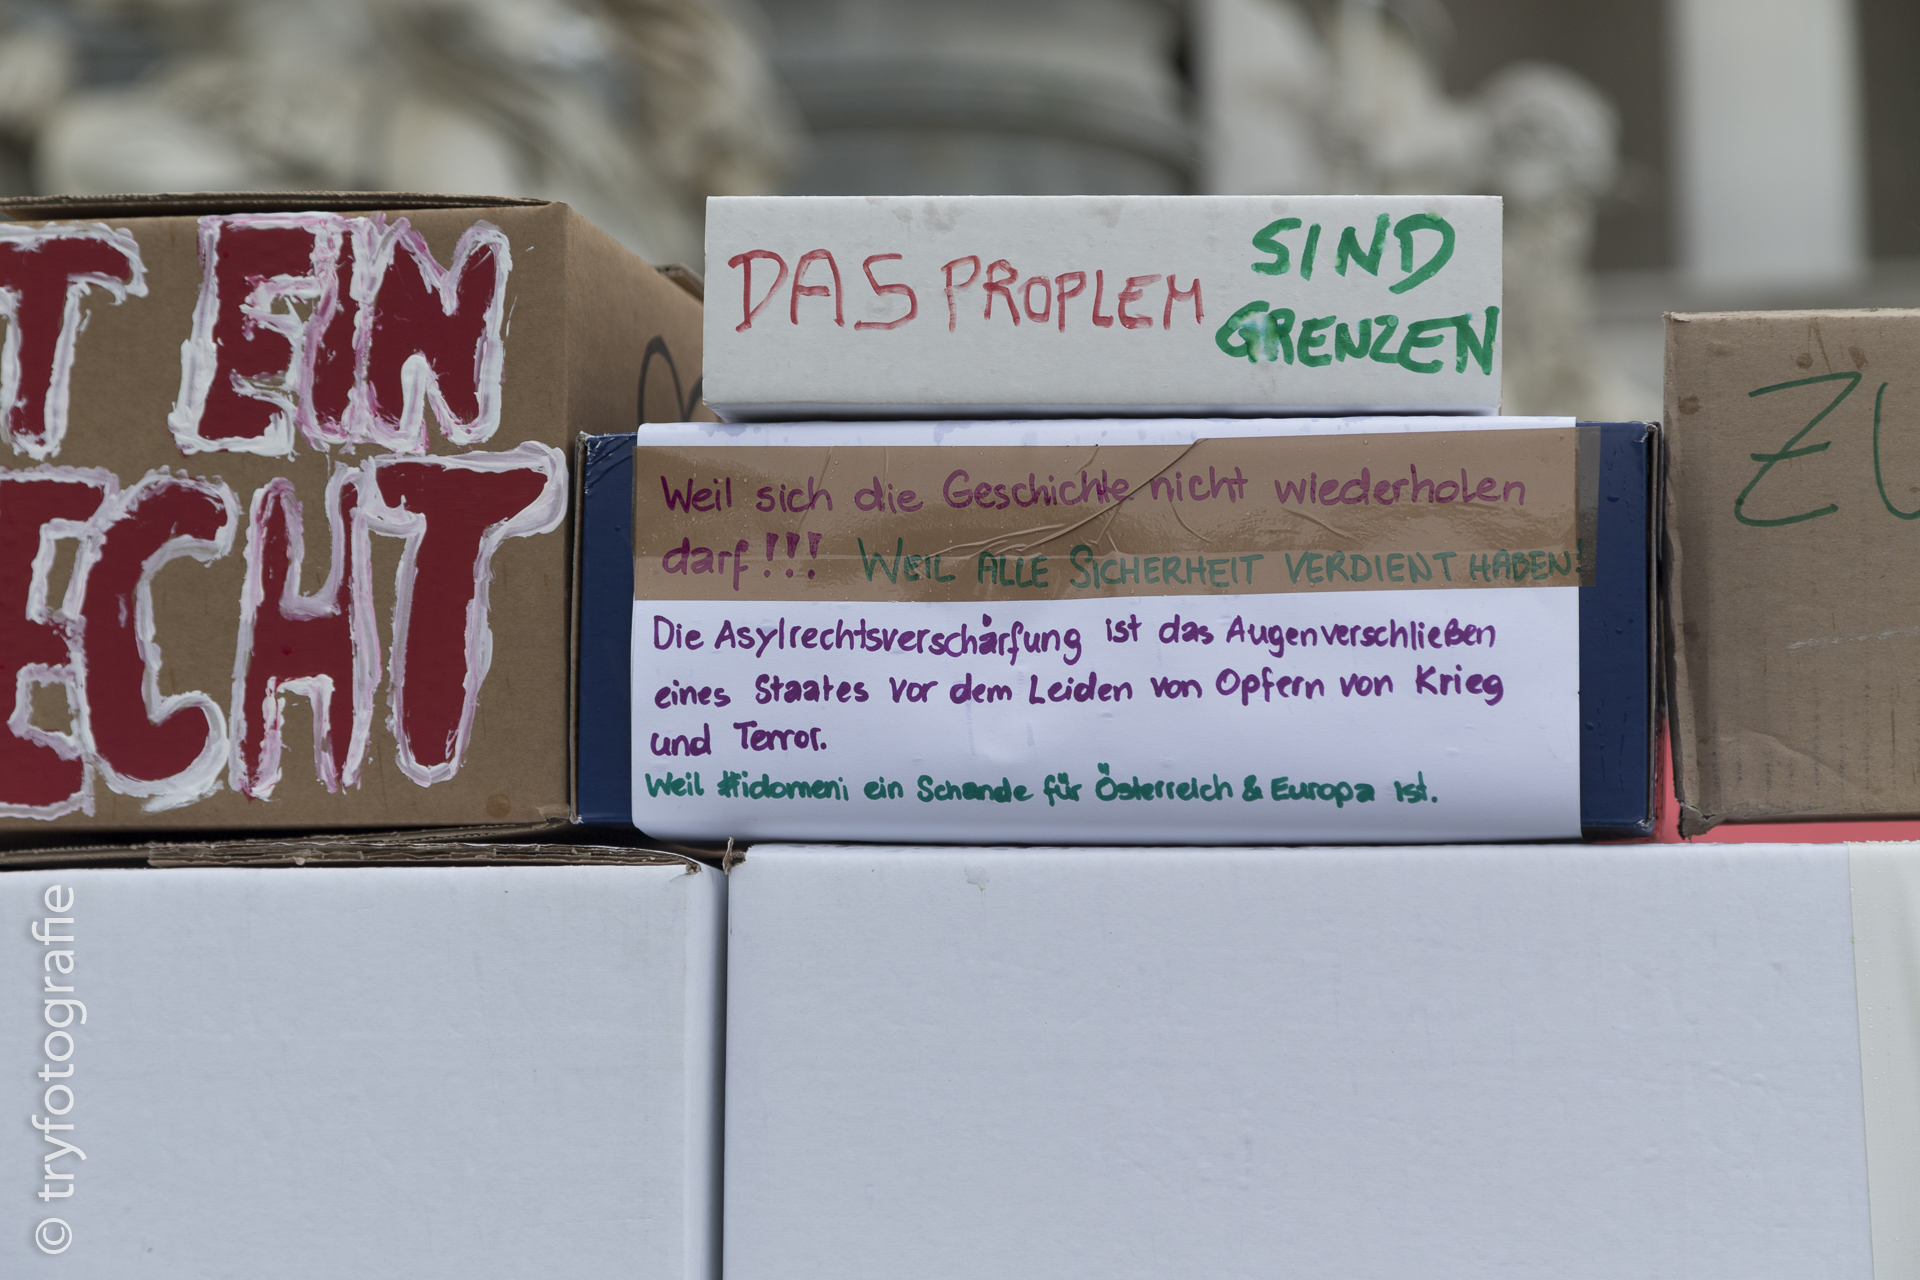 T EIN
ECHT
DAS PROPLEM SIND
GRENZEN
Weil sich die Geschichte nicht wiederholen
darf!!! WEIL ALLE SICHERHEIT VERDIENT HABEN!
Die Asylrechtsverschärfung ist das Augenverschließen
eines Staates vor dem Leiden von Opfern von Krieg
und Terror.
Weil #idomeni ein Schande für Österreich & Europa ist.
ZU
© tryfotografie